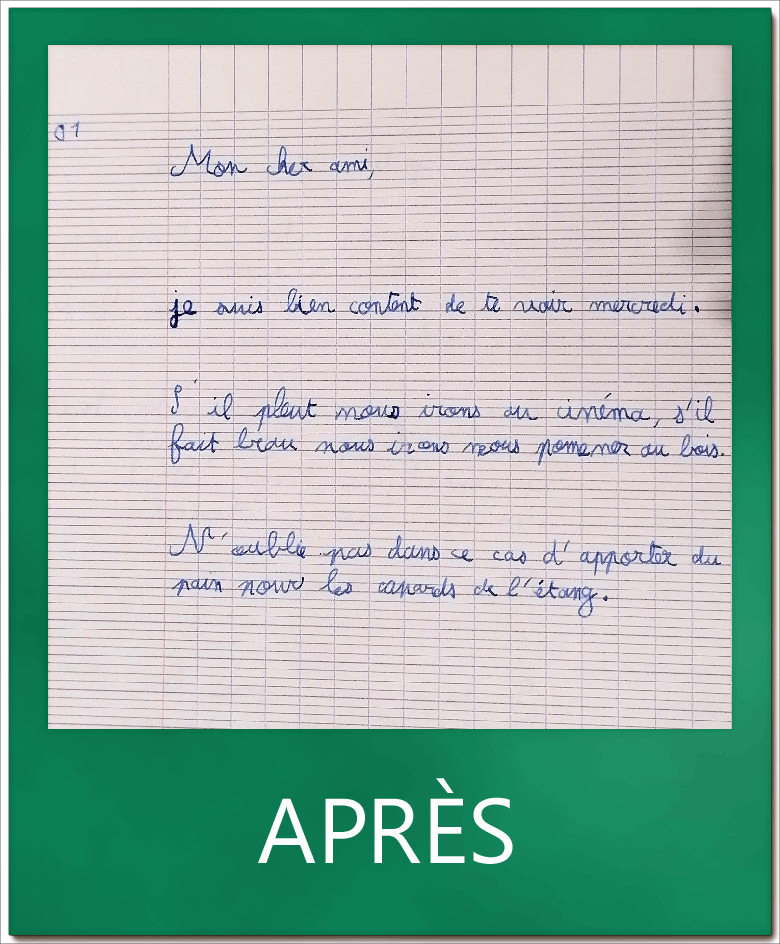 01
Mon cher ami,
je suis bien content de te voir mercredi.
S'il pleut nous irons au cinéma, s'il
fait beau nous irons nous pomener au bois.
N'oublie pas dans ce cas d'apporter du
pain pour les canards de l'étang.
APRÈS